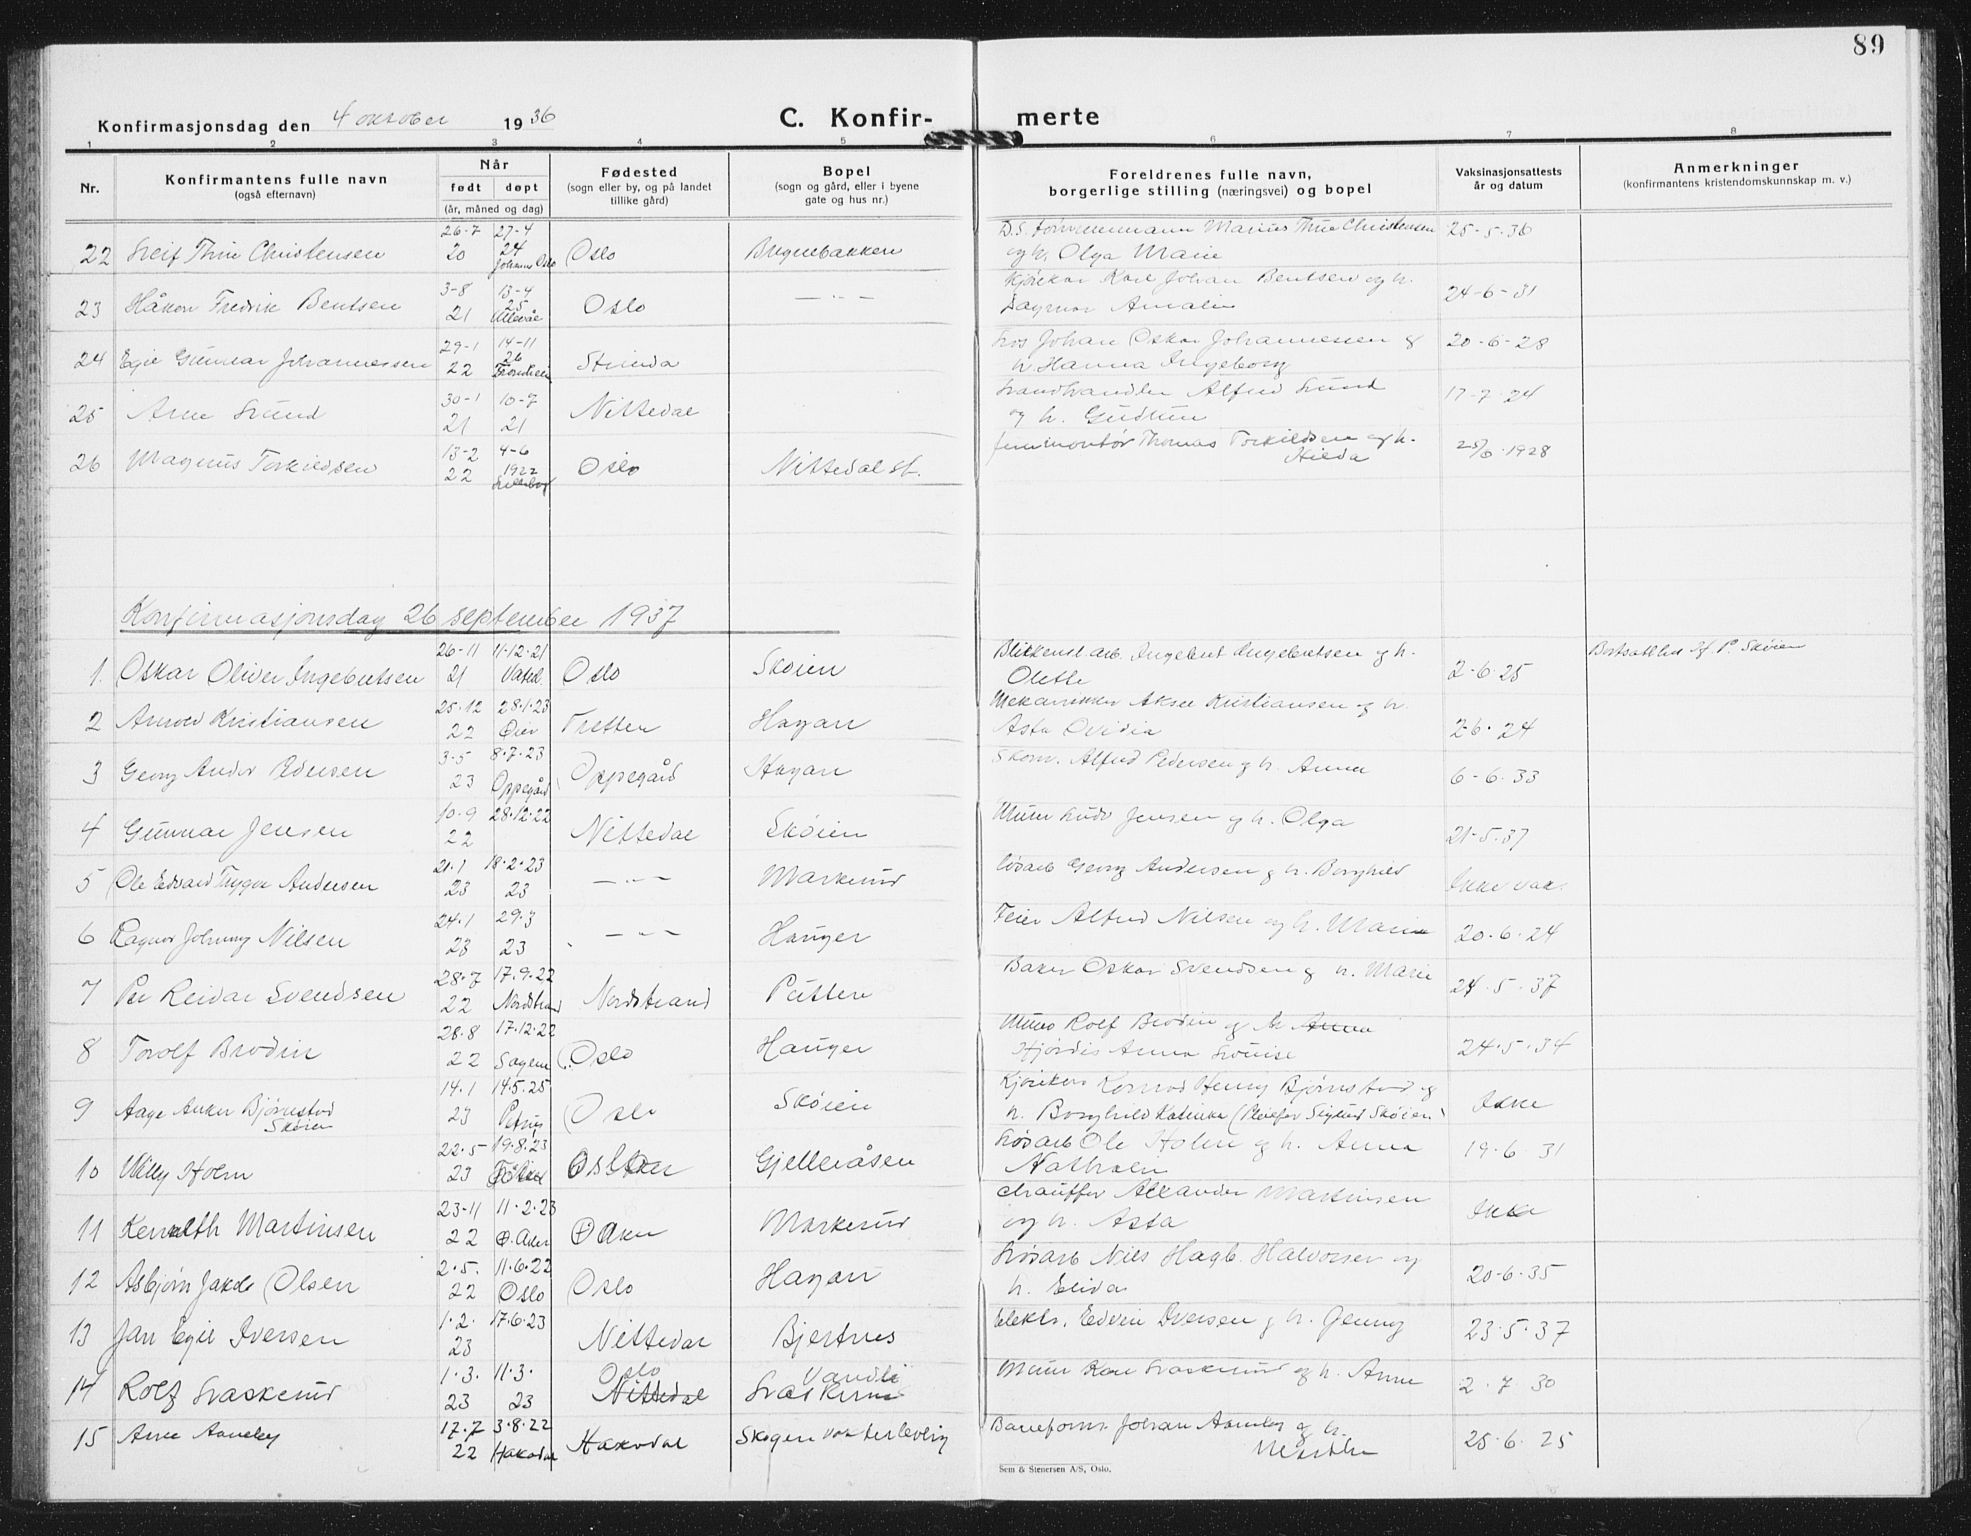 89
Konfirmasjonsdag den 4 oktober 1936 C. Konfirmerte
1 2 3 4 5 6 7 8
Nr. Konfirmantens fulle navn (også efternavn) Når født døpt (år, måned og dag) Fødested (sogn eller by, og på landet tillike gård) Bopel (sogn og gård, eller i byene gate og hus nr.) Foreldrenes fulle navn, borgerlige stilling (næringsvei) og bopel Vaksinasjonsattests år og datum Anmerkninger (konfirmantens kristendomskunnskap m. v.)
22 Leif Thue Christensen 26-7 20 27-4 24 Johannes Oslo Oslo Marius Thue Christensen og h. Olga Marie 25-5-36
23 Håkon Fredrik Bentsen 3-8 21 13-4 25 Ullevål Oslo —"— Kjørekar Karl Johan Bentsen og h. Dagmar Amalie 24-6-31
24 Egil Gunnar Johannessen 29-1 22 14-11 26 Trondheim Strinda Johan Oskar Johannessen & h Hanna Ingeborg 20-6-28
25 Arne Lund 30-1 21 10-7 21 Nittedal Alfred Lund og h. Gudrun 17-7-24
26 Magnus Torkildsen 13-2 22 4-6 1922 Oslo Nittedal st. Jernmontør Thomas Torkildsen og h. Hilda 25/6 1928
Konfirmasjonsdag 26 september 1937
1. Oskar Oliver Ingebretsen 26-11 21 11-12-21 Oslo Skøien Blikkensl. arb. Ingebret Ingebretsen og h. Olette 2-6-25 Bortsatt hos P. Skøien
2 Arnold Kristiansen 25.12 22 28.1.23 Øier Tretten Hagan Mekaniker Aksel Kristiansen og h. Asta Ovidia 2-6-24
3 Georg Andor Pedersen 3-5 23 8.7.23 Oppegård Oppegård Hagan Skom. Alfred Pedersen og h. Anna 6-6-33
4 Gunnar Jensen 10-9 22 28.12.22 Nittedal Skøien Murer Ludv Jensen og h. Olga 21-5-37
5 Ole Edvard Trygve Andersen 21.1 23 18.2.23 23 —"— Markerud Løsarb Georg Andersen og h. Borghild Ikke vak.
6 Ragnar Johnny Nilsen 24.1 23 29.3 23 —"— Hauger Feier Alfred Nilsen og h. Marie 20-6-24
7 Per Reidar Svendsen 28.7 22 17.9.22 Nordstrand Nordstrand Bakerm Oskar Svendsen og h. Marie 24.5.37
8 Torolf Brodin 28.8 22 17.12.22 Sagene Oslo Hauger Murer Rolf Brodin og h Anna Hjørdis Anna Louise 24.5.34
9 Aage Anker Bjørnstad Skøien 14.1 23 14.5.25 Petrus Oslo Skøien Kjørekar Konrad Henry Bjørnstad og h. Borghild Katinka (Pleiefar Sigurd Skøien) Ikke
10 Willy Holm 22.5 23 19.8.23 Gjelleråsen Løsarb Ole Holm og h. Anna 19-6-31
11 Kenneth Martinsen 23-11 22 11.2.23 Ø. Aker Aker Markerud Chauffør Alexander Martinsen og h. Asta Ikke
12 Asbjørn Jakob Olsen 2.5. 22 11.6.22 Oslo Oslo Hagan Løsarb Nils Hagb. Halvorsen og h. Elida 20-6-35
13 Jan Egil Iversen 1.2. 23 17.6.23 Nittedal Bjertnes Elektr. Edvin Iversen og h. Jenny 23.5.37
14 Rolf Laskerud 1.3. 23 11.3. 23 Oslo Nittedal Vandli Laskerud Murer Karl Laskerud og h. Anne 2.7.30
15 Arne Aaneby 17.7 22 3.8.22 Hakadal Hakadal Skogen Baneform. Johan Aaneby og h. 25.6.25
Sem & Stenersen A/S, Oslo.